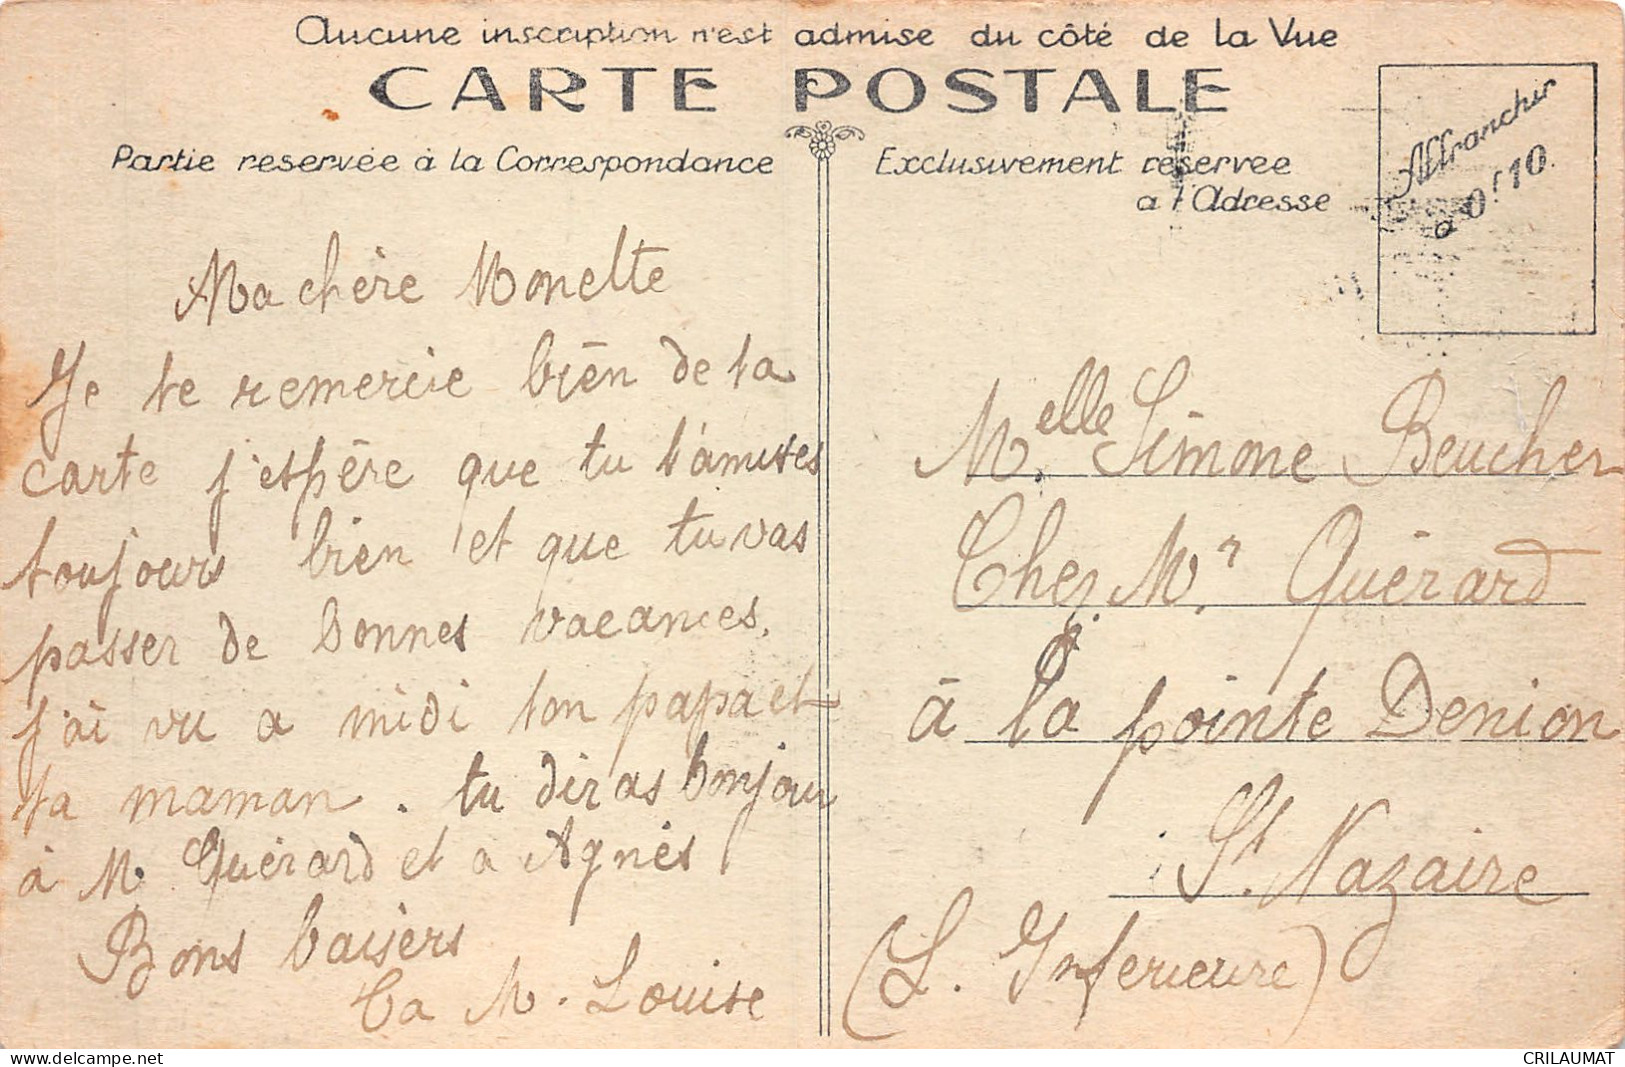 Aucune inscription n'est admise du côté de la Vue
CARTE POSTALE
Partie reservée à la Correspondance
Exclusivement reservee
a l'Adresse
Affranchir
a 0f10.
Ma chère Monette
Je te remercie bien de ta
carte j'espère que tu t'amuses
toujours bien et que tu vas
passer de bonnes vacances.
j'ai vu a midi ton papa et
ta maman. tu diras bonjour
à M. Guérard et a Agnès
Bons baisers
Ta M. Louise
Melle Simone Beucher
Chez Mr Guérard
à la pointe Denion
St. Nazaire
(L. Inferieure)
www.delcampe.net
CRILAUMAT